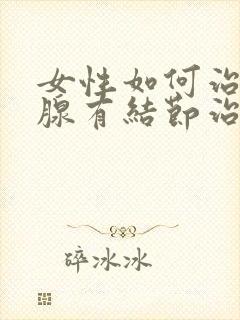 女性如何治
腺有結節治
碎冰冰